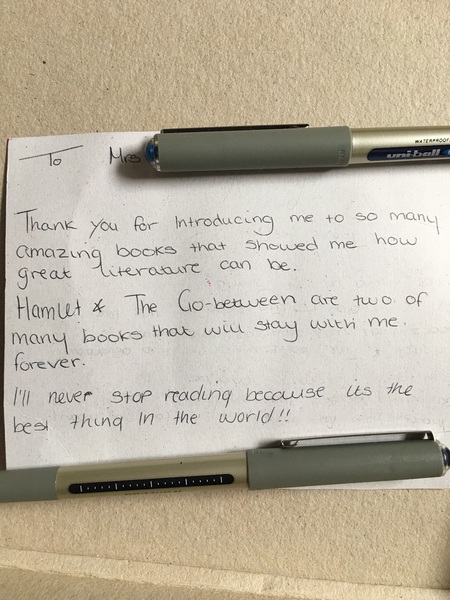 To Mrs
WATERPROOF
uni-ball
Thank you for Introducing me to so many
amazing books that showed me how
great literature can be.
Hamlet & The Go-between are two of
many books that will stay with me
forever.
I'll never stop reading because its the
best thing in the world!!